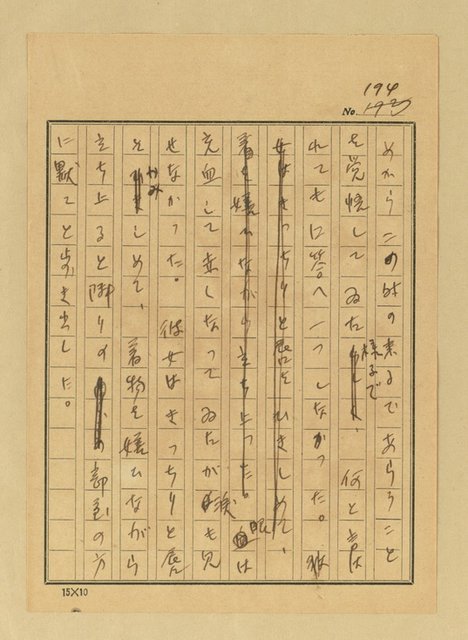 No. 194
めからこの時の来るであらうこと
を覚悟してゐた様子で、何と云は
れても口答へ一つしなかつた。彼
女はきつちりと唇をひきしめて、
ながら立ち上つた。眼は
充血して赤くなつてゐたが涙も見
せなかつた。彼女はきつちりと唇
をかみしめて、着物をひながら
立ち上ると隣りの部屋の方
に默々と歩き出した。
15×10